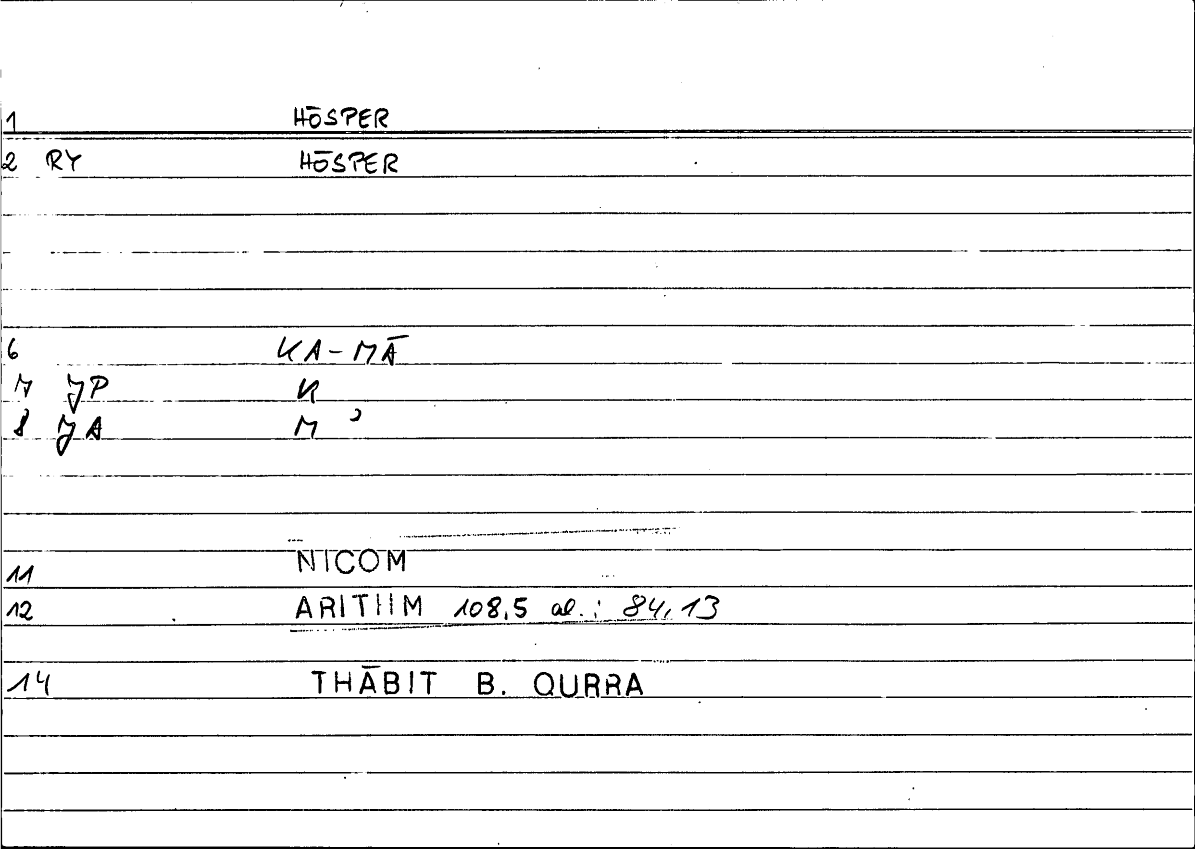 1 HŌSPER
2 RY HŌSPER
6 KA-MĀ
7 JP K
8 JA M ʾ
11 NICOM
12 ARITHM 108,5 al.: 84,13
14 THĀBIT B. QURRA